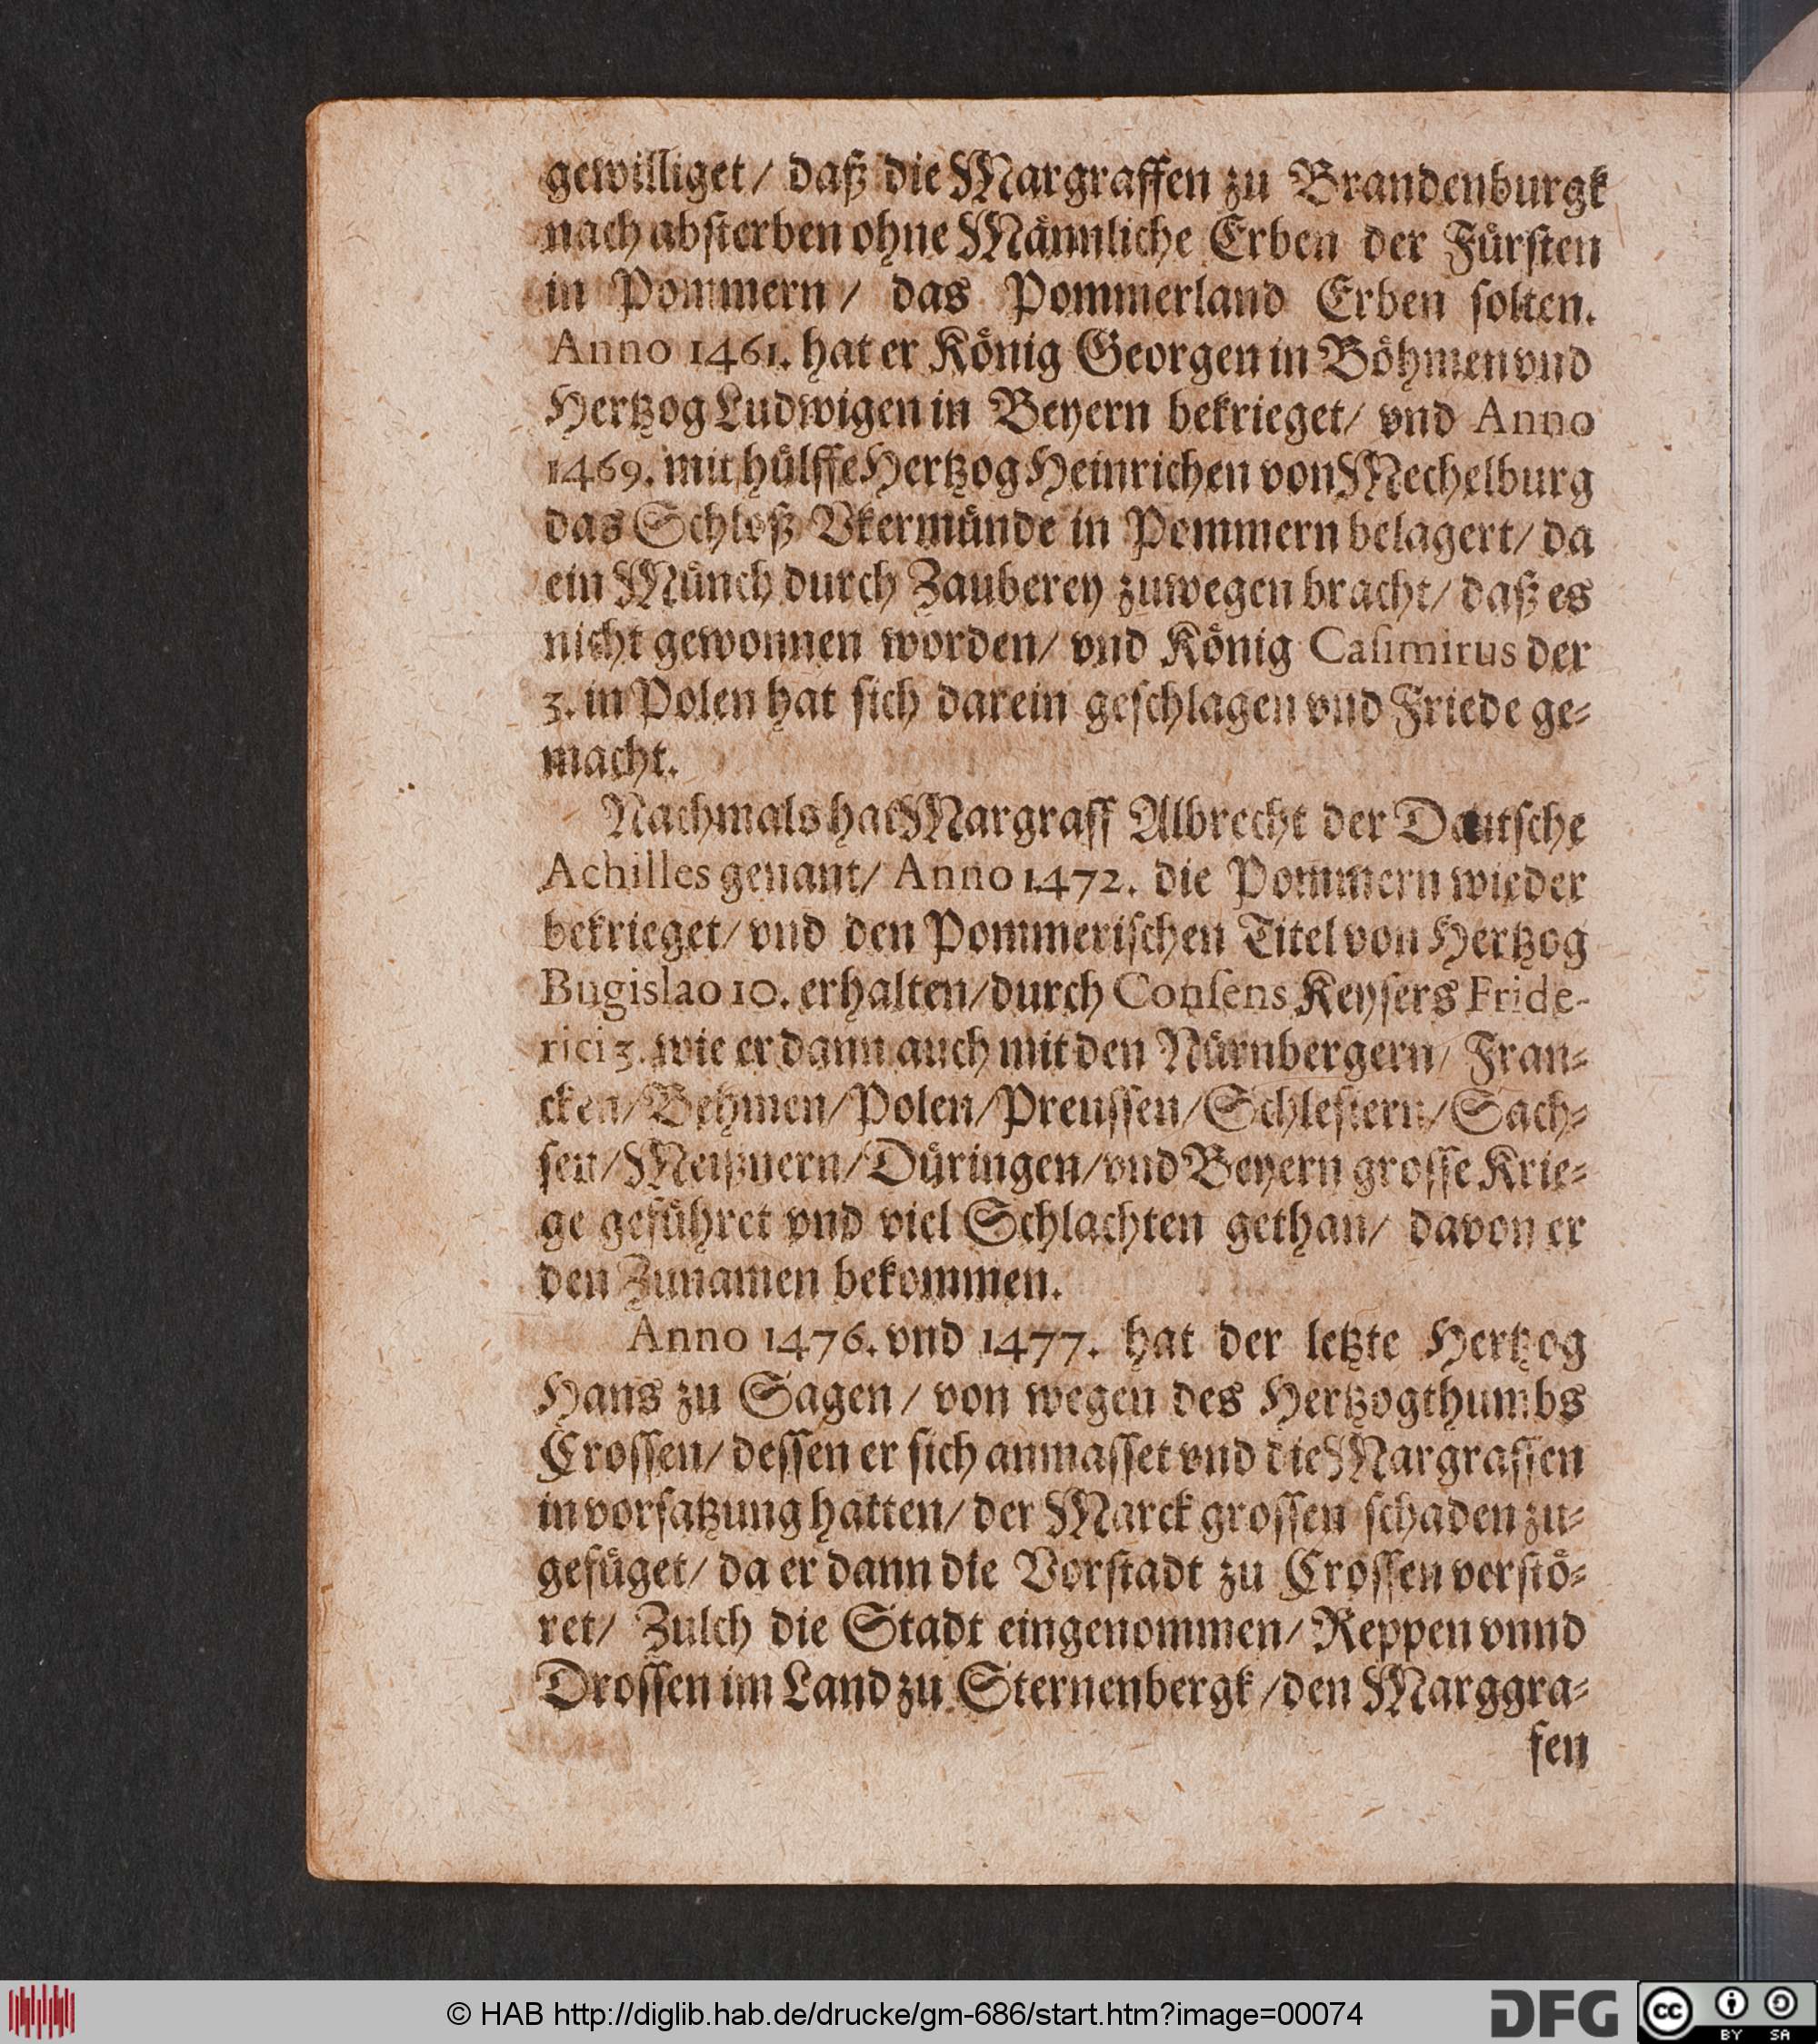 gewilliget/ daß die Margraffen zu Brandenburgk
nach absterben ohne Männliche Erben der Fürsten
in Pommern/ das Pommerland Erben solten.
Anno 1461. hat er König Georgen in Böhmen vnd
Hertzog Ludwigen in Beyern bekrieget/ vnd Anno
1469. mit hülffe Hertzog Heinrichen von Mechelburg
das Schloß Vkermünde in Pommern belagert/ da
ein Münch durch Zauberey zuwegen bracht/ daß es
nicht gewonnen worden/ vnd König Casimirus der
3. in Polen hat sich darein geschlagen vnd Friede ge-
macht.
Nachmals hat Margraff Albrecht der Dautsche
Achilles genant/ Anno 1472. die Pommern wieder
bekrieget/ vnd den Pommerischen Titel von Hertzog
Bugislao 10. erhalten/ durch Consens Keysers Fride-
rici 3. wie er dann auch mit den Nürnbergern/ Fran-
cken/ Behmen/ Polen/ Preussen/ Schlesiern/ Sach-
sen/ Meißnern/ Düringen/ vnd Beyern grosse Krie-
ge geführet vnd viel Schlachten gethan/ davon er
den Zunamen bekommen.
Anno 1476. vnd 1477. hat der letzte Hertzog
Hans zu Sagen/ von wegen des Hertzogthumbs
Crossen/ dessen er sich anmasset vnd die Margraffen
in vorsatzung hatten/ der Marck grossen schaden zu-
gefüget/ da er dann die Vorstadt zu Crossen verstö-
ret/ Zulch die Stadt eingenommen/ Reppen vnnd
Drossen im Land zu Sternenbergk/ den Marggra-
fen
© HAB http://diglib.hab.de/drucke/gm-686/start.htm?image=00074
DFG
cc BY SA